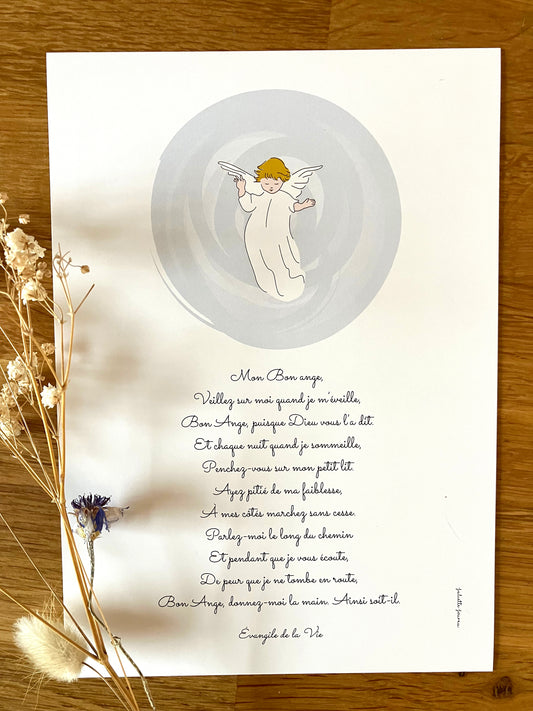 Mon Bon ange,
Veillez sur moi quand je m'éveille,
Bon Ange, puisque Dieu vous l'a dit.
Et chaque nuit quand je sommeille,
Penchez-vous sur mon petit lit.
Ayez pitié de ma faiblesse,
À mes côtés marchez sans cesse.
Parlez-moi le long du chemin
Et pendant que je vous écoute,
De peur que je ne tombe en route,
Bon Ange, donnez-moi la main. Ainsi soit-il.
Évangile de la Vie